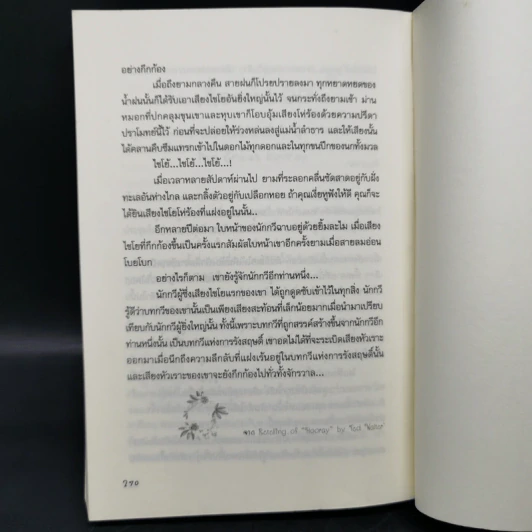 อย่างกึกก้อง
เมื่อถึงยามกลางคืน สายฝนก็โปรยปรายลงมา ทุกหยาดหยดของ
น้ำฝนนั้นก็ได้รับเอาเสียงไชโยอันยิ่งใหญ่นั้นไว้ จนกระทั่งถึงยามเช้า ม่าน
หมอกที่ปกคลุมขุนเขาและหุบเขาก็โอบอุ้มเสียงโห่ร้องด้วยความปรีดา
ปราโมทย์นี้ไว้ ก่อนที่จะปล่อยให้ร่วงหล่นลงสู่แม่น้ำลำธาร และให้เสียงนั้น
ได้คลานคืบซึมแทรกเข้าไปในดอกไม้ทุกดอกและในทุกขนปีกของนกทั้งมวล
ไชโย้...ไชโย้...ไชโย้...!
เมื่อเวลาหลายสัปดาห์ผ่านไป ยามที่ระลอกคลื่นซัดสาดอยู่กับฝั่ง
ทะเลอันห่างไกล และกลิ้งตัวอยู่กับเปลือกหอย ถ้าคุณเงี่ยหูฟังให้ดี คุณก็จะ
ได้ยินเสียงไชโยโห่ร้องที่แฝงอยู่ในนั้น..
อีกหลายปีต่อมา ใบหน้าของนักกวีฉาบอยู่ด้วยยิ้มละไม เมื่อเสียง
ไชโยที่กึกก้องขึ้นเป็นครั้งแรกสัมผัสใบหน้าเขาอีกครั้งยามเมื่อสายลมอ่อน
โบยโบก
อย่างไรก็ตาม เขายังรู้จักนักกวีอีกท่านหนึ่ง...
นักกวีผู้ซึ่งเสียงไชโยแรกของเขา ได้ถูกดูดซับเข้าไว้ในทุกสิ่ง นักกวี
รู้ดีว่าบทกวีของเขานั้นเป็นเพียงเสียงสะท้อนที่เล็กน้อยมากเมื่อนำมาเปรียบ
เทียบกับนักกวีผู้ยิ่งใหญ่นั้น ทั้งนี้เพราะบทกวีที่ถูกสรรค์สร้างขึ้นจากนักกวีอีก
ท่านหนึ่งนั้น เป็นบทกวีแห่งการรังสฤษดิ์ เขาอดไม่ได้ที่จะระเบิดเสียงหัวเราะ
ออกมาเมื่อนึกถึงความลึกลับที่แฝงเร้นอยู่ในบทกวีแห่งการรังสฤษดิ์นั้น
และเสียงหัวเราะของเขาจะยังกึกก้องไปทั่วทั้งจักรวาล...
จาก of "Hooray" by Ted
๒๑๐